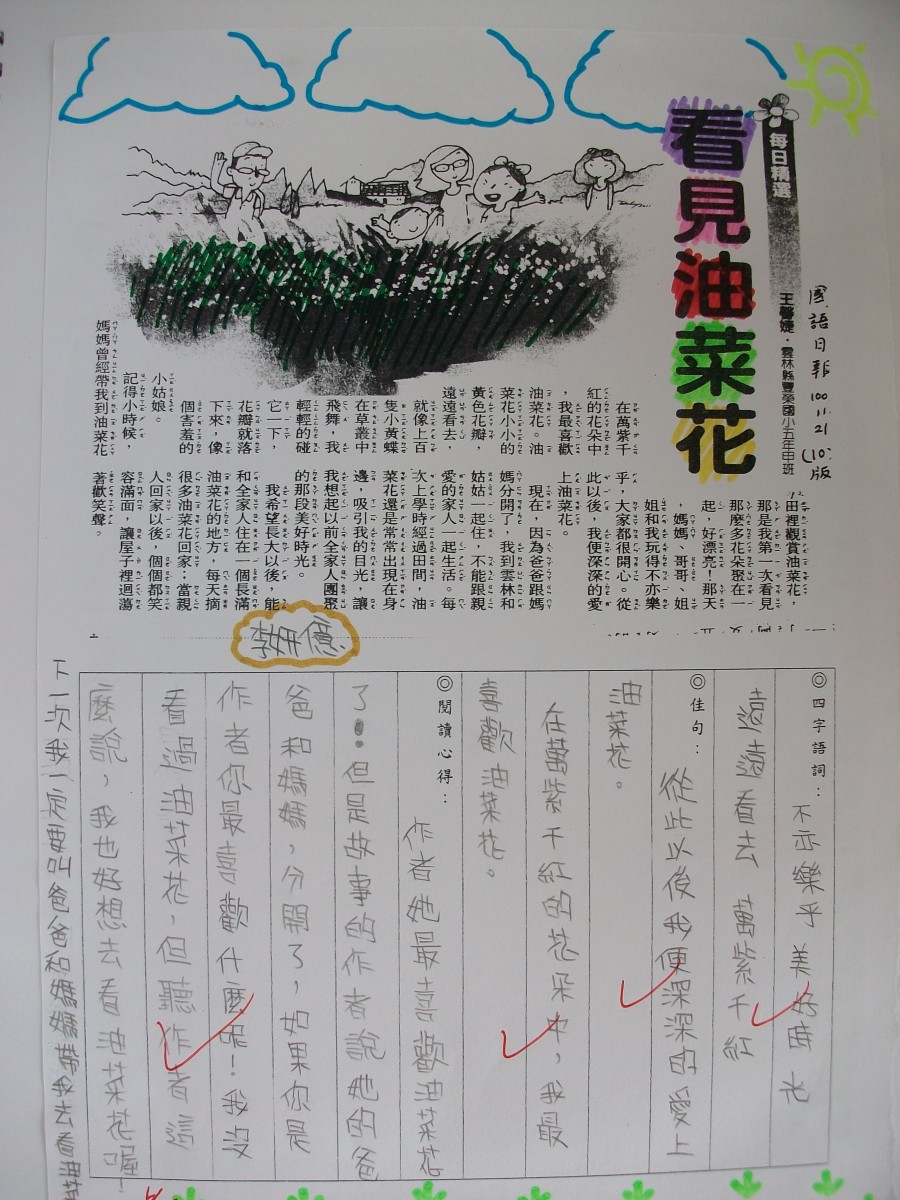 每日精選
看見油菜花
王馨婕．雲林縣豐榮國小五年甲班
國語日報 100.11.21 (10版
在萬紫千
紅的花朵中
，我最喜歡
油菜花。油
菜花小小的
黃色花瓣，
遠遠看去，
就像上百
隻小黃蝶
在草叢中
飛舞，我
輕輕的碰
它一下，
花瓣就落
下來，像
個害羞的
小姑娘。
記得小時候，
媽媽曾經帶我到油菜花
田裡觀賞油菜花，
那是我第一次看見
那麼多花朵聚在一
起，好漂亮！那天
，媽媽、哥哥、姐
姐和我玩得不亦樂
乎，大家都很開心。從
此以後，我便深深的愛
上油菜花。
現在，因為爸爸跟媽
媽分開了，我到雲林和
姑姑一起住，不能跟親
愛的家人一起生活。每
次上學時經過田間，油
菜花還是常常出現在身
邊，吸引我的目光，讓
我想起以前全家人團聚
的那段美好時光。
我希望長大以後，能
和全家人住在一個長滿
油菜花的地方，每天摘
很多油菜花回家；當親
人回家以後，個個都笑
容滿面，讓屋子裡迴蕩
著歡笑聲。
李妍僖
◎四字語詞：不亦樂乎 美好時光
遠遠看去 萬紫千紅
◎佳句：從此以後我便深深的愛上
油菜花。
在萬紫千紅的花朵中，我最
喜歡油菜花。
◎閱讀心得：作者她最喜歡油菜花
了！但是故事的作者說她的爸
爸和媽媽，分開了，如果你是
作者你最喜歡什麼呢！我沒
看過油菜花，但聽作者這
麼說，我也好想去看油菜花喔！
下一次我一定要叫爸爸和媽媽帶我去看油菜